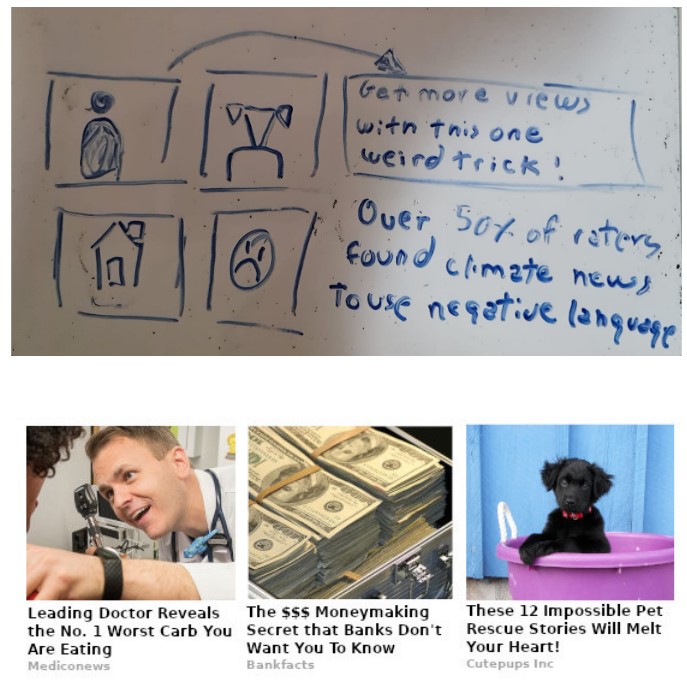 Get more views
with this one
weird trick!
Over 50% of raters
found climate news
to use negative language
Leading Doctor Reveals
the No. 1 Worst Carb You
Are Eating
Mediconews
The $$$ Moneymaking
Secret that Banks Don't
Want You To Know
Bankfacts
These 12 Impossible Pet
Rescue Stories Will Melt
Your Heart!
Cutepups Inc